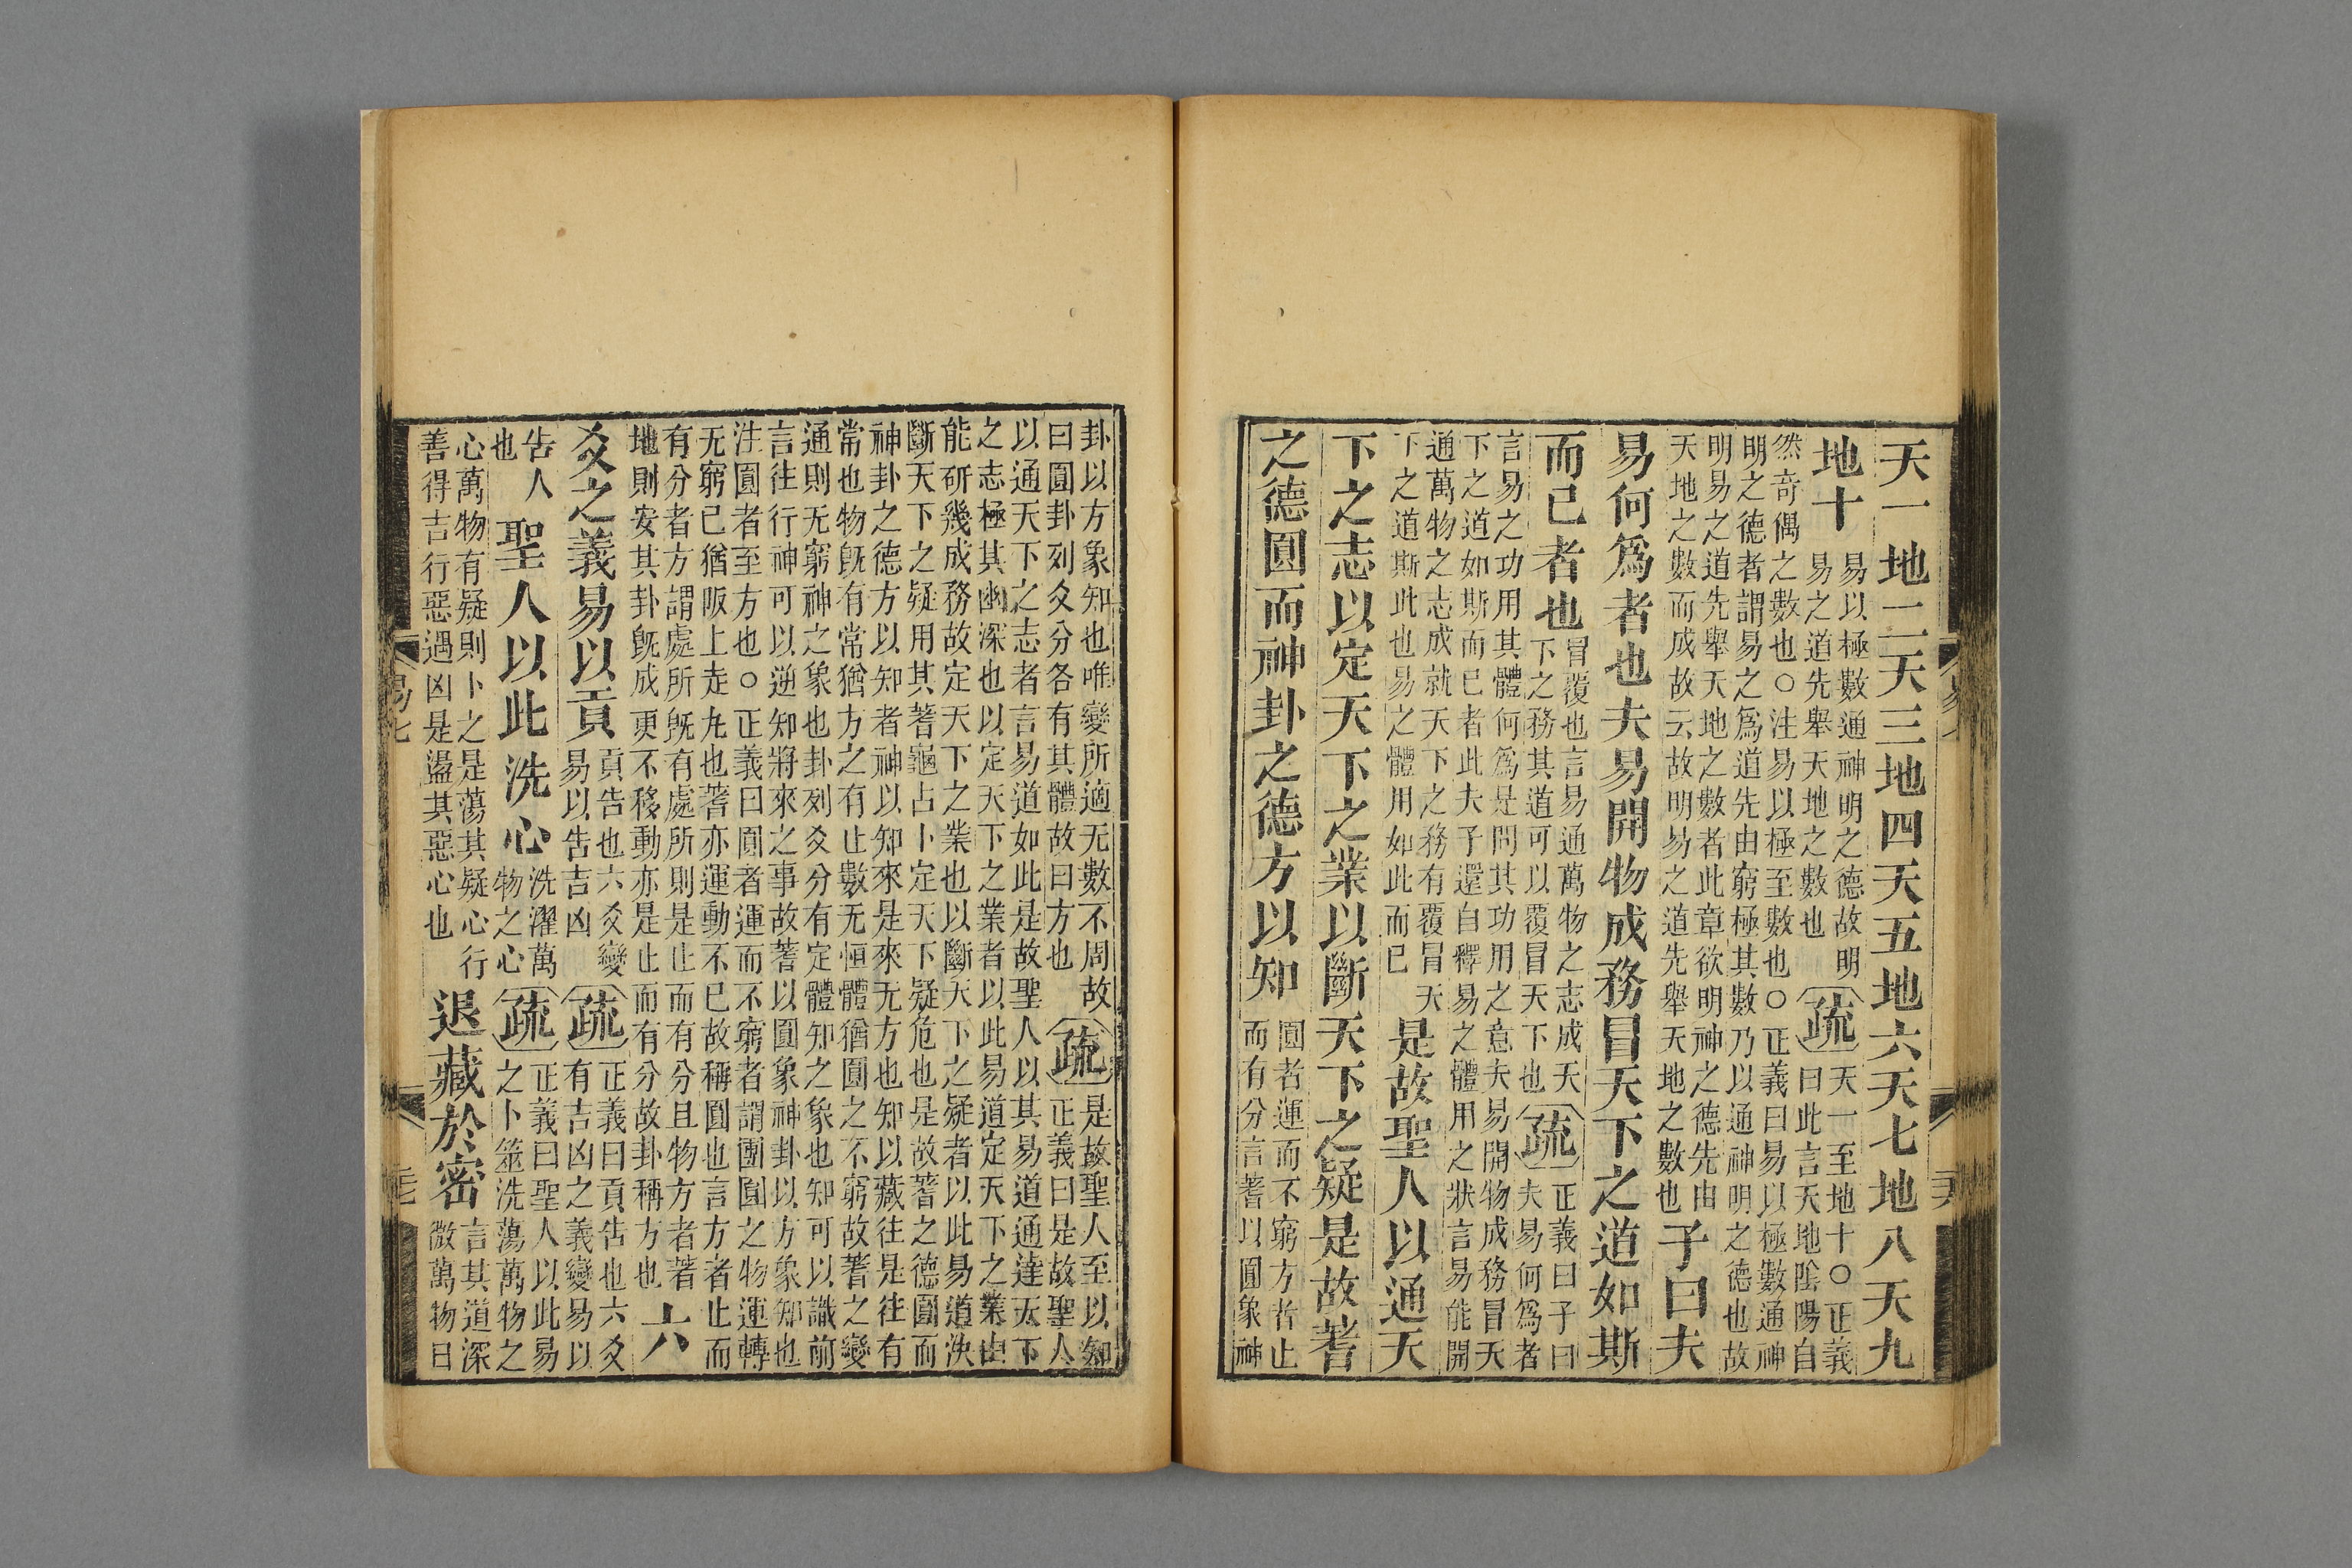 天一地二天三地四天五地六天七地八天九
地十
易以極數通神明之德故明
易之道先舉天地之數也
疏
天一至地十○正義
曰此言天地陰陽自
然奇偶之數也○注易以極至數也○正義曰易以極數通神
明之德者謂易之爲道先由窮極其數乃以通神明之德也故
明易之道先舉天地之數者此章欲明神之德先由
天地之數而成故云故明易之道先舉天地之數也
子曰夫
易何爲者也夫易開物成務冒天下之道如斯
而已者也
冒覆也言易通萬物之志成天
下之務其道可以覆冒天下也
疏
正義曰子曰
夫易何爲者
言易之功用其體何爲是問其功用之意夫易開物成務冒天
下之道如斯而已者此夫子還自釋易之體用之狀言易能開
通萬物之志成就天下之務有覆冒天
下之道斯此也易之體用如此而已
是故聖人以通天
下之志以定天下之業以斷天下之疑是故蓍
之德圓而神卦之德方以知
圓者運而不窮方者止
而有分言蓍以圓象神
卦以方象知也唯變所適无數不周故
曰圓卦列爻分各有其體故曰方也
疏
是故聖人至以知
正義曰是故聖人
以通天下之志者言易道如此是故聖人以其易道通達天下
之志極其幽深也以定天下之業者以此易道定天下之業由
能研幾成務故定天下之業也以斷天下之疑者以此易道決
斷天下之疑用其蓍龜占卜定天下疑危也是故蓍之德圓而
神卦之德方以知者神以知來是來无方也知以藏往是往有
常也物旣有常猶方之有止數无恒體猶圓之不窮故蓍之變
通則无窮神之象也卦列爻分有定體知之象也知可以識前
言往行神可以逆知將來之事故蓍以圓象神卦以方象知也
注圓者至方也○正義曰圓者運而不窮者謂團圓之物運轉
无窮已猶阪上走丸也蓍亦運動不已故稱圓也言方者止而
有分者方謂處所旣有處所則是止而有分且物方者著
地則安其卦旣成更不移動亦是止而有分故卦稱方也
六
爻之義易以貢
貢告也六爻變
易以告吉凶
疏
正義曰貢告也六爻
有吉凶之義變易以
告人
也
聖人以此洗心
洗濯萬
物之心
疏
正義曰聖人以此易
之卜筮洗蕩萬物之
心萬物有疑則卜之是蕩其疑心行
善得吉行惡遇凶是盪其惡心也
退藏於密
言其道深
微萬物日
易七